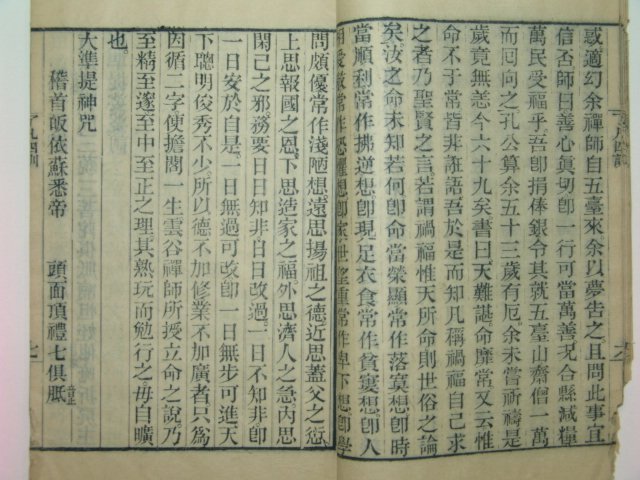 惑適幻余禪師自五臺來余以夢告之且問此事宜
信否師曰善心眞切卽一行可當萬善況合縣減糧
萬民受福乎吾卽捐俸銀令其就五臺山齋僧一萬
而囘向之孔公算余五十三歲有厄余未嘗祈禱是
歲竟無恙今六十九矣書曰天難諶命靡常又云惟
命不于常皆非誑語吾於是而知凡稱禍福自己求
之者乃聖賢之言若謂禍福惟天所命則世俗之論
矣汝之命未知若何卽命當榮顯常作落寞想卽時
當順利常作拂逆想卽現足衣食常作貧窶想卽人
相愛敬常作恐懼想卽家世望重常作卑下想卽學
問頗優常作淺陋想遠思揚祖之德近思蓋父之愆
上思報國之恩下思造家之福外思濟人之急內思
閑己之邪務要日日知非日日改過一日不知非卽
一日安於自是一日無過可改卽一日無步可進天
下聰明俊秀不少所以德不加修業不加廣者只爲
因循二字使擔閣一生雲谷禪師所授立命之說乃
至精至邃至中至正之理其熟玩而勉行之毋自曠
也
大準提神咒
稽首皈依蘇悉帝 頭面頂禮七俱胝